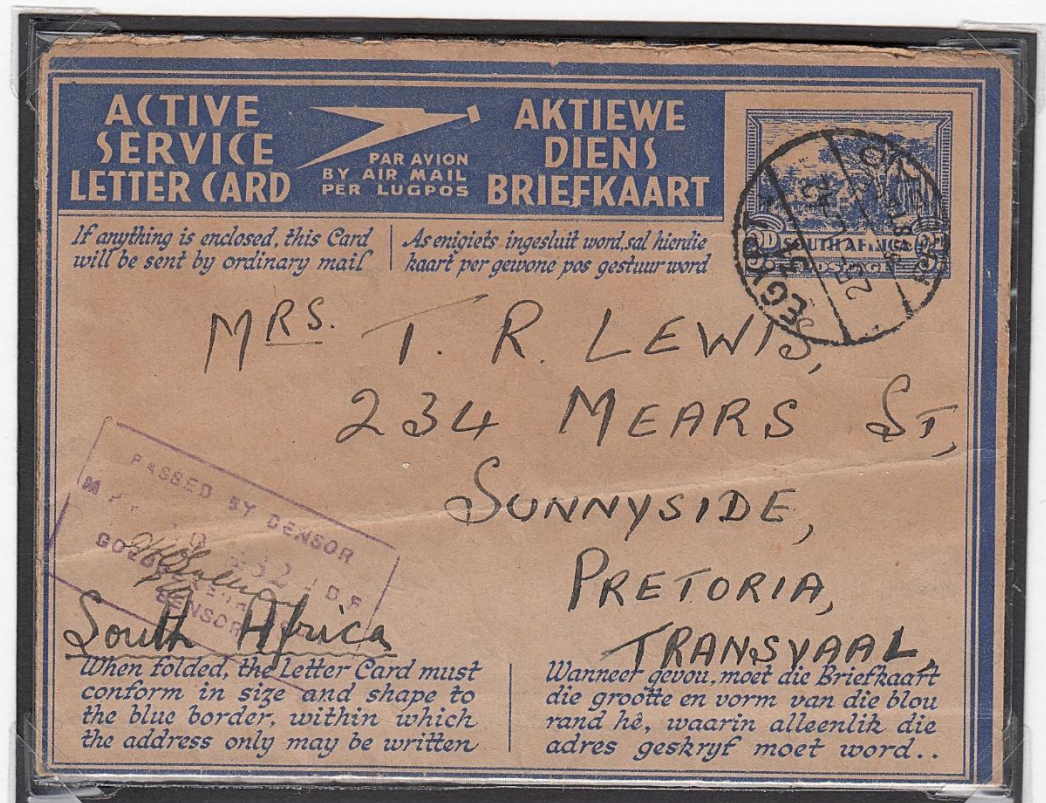 ACTIVE
SERVICE
LETTER CARD
PAR AVION
BY AIR MAIL
PER LUGPOS
AKTIEWE
DIENS
BRIEFKAART
SOUTH AFRICA
POSTAGE
EGYPT
If anything is enclosed, this Card
will be sent by ordinary mail
As enigiets ingesluit word, sal hierdie
kaart per gewone pos gestuur word
MRS. T. R. LEWIS,
234 MEARS ST,
SUNNYSIDE,
PRETORIA,
TRANSVAAL,
South Africa
PASSED BY CENSOR
When folded, the Letter Card must
conform in size and shape to
the blue border, within which
the address only may be written
Wanneer gevou, moet die Briefkaart
die grootte en vorm van die blou
rand hê, waarin alleenlik die
adres geskryf moet word..